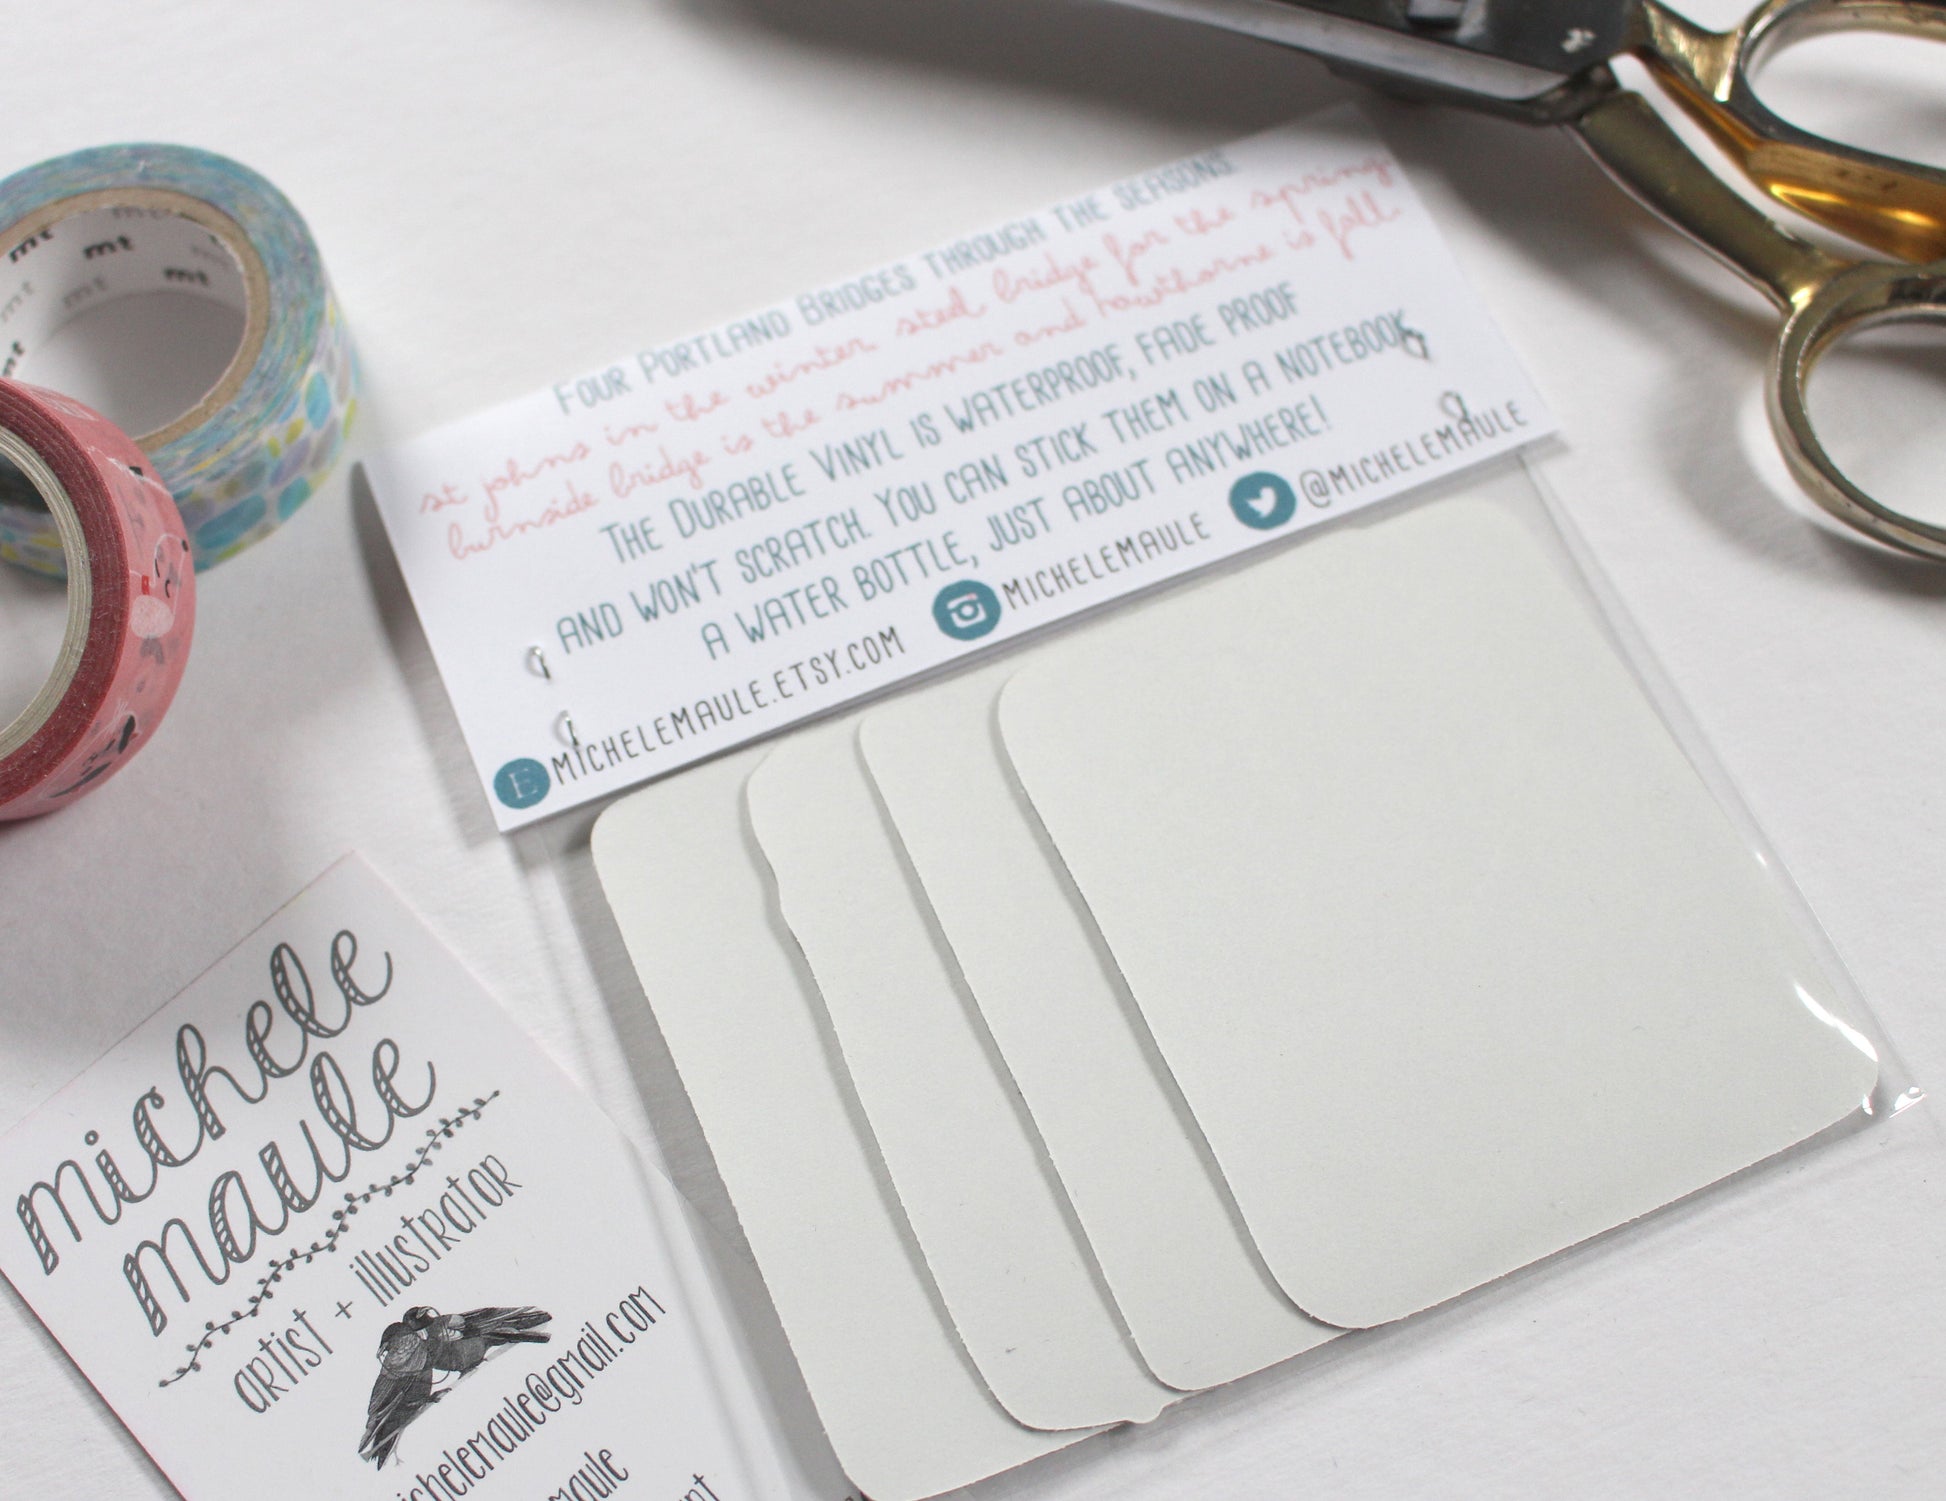 Four Portland Bridges through the seasons.
st johns in the winter steel bridge for the spring
burnside bridge is the summer and hawthorne is fall.
The Durable Vinyl is waterproof, fade proof
and won't scratch. You can stick them on a notebook
a water bottle, just about anywhere!
E michelemaule.etsy.com michelemaule @michelemaule
mt mt mt
mt mt mt
mt
michele
maule
artist + illustrator
ichelemaule@gmail.com
aule